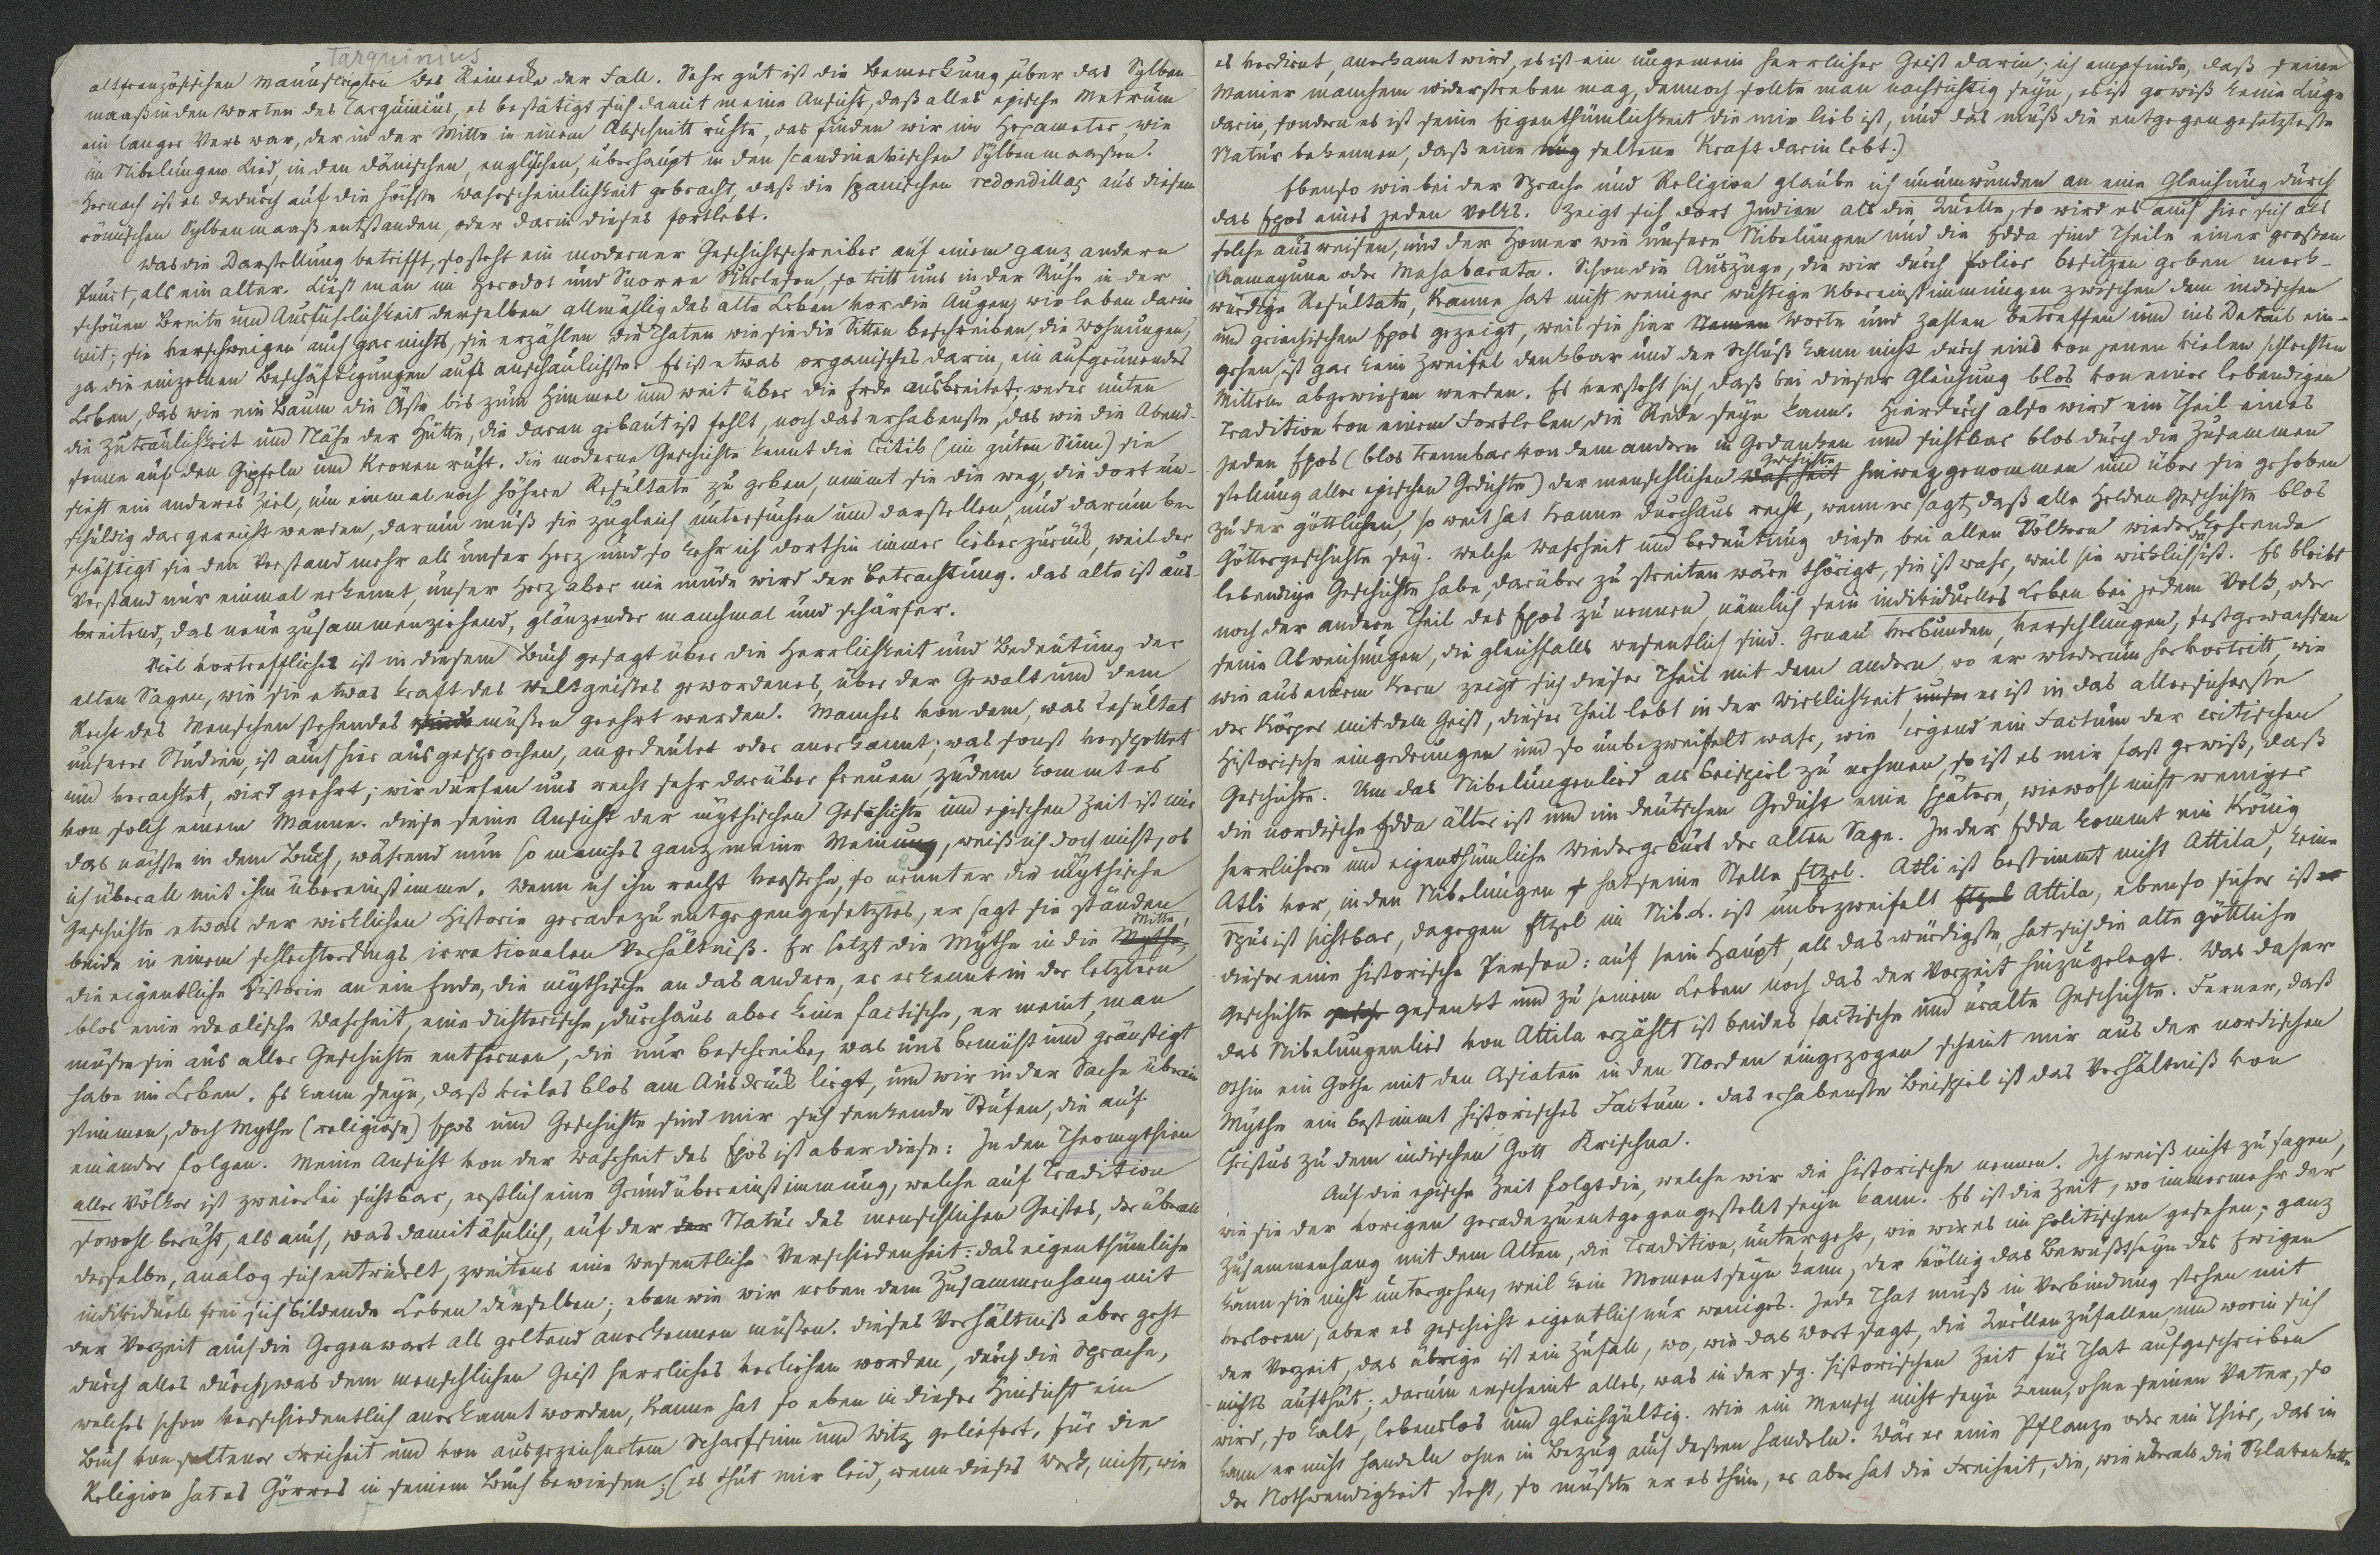 Tarquinius
altfranzösischen Manuscripten des Reineke der Fall. Sehr gut ist die Bemerkung über das Sylben-
maaß in den Worten des Tarquinius, es bestätigt sich damit meine Ansicht, daß alles epische Metrum
ein langer Vers war, der in der Mitte in einem Abschnitt ruhte, das finden wir im Hexameter, wie
im Nibelungen Lied, in den dänischen, englischen, überhaupt in den scandinavischen Sylbenmaaßen.
Hernach ist es dadurch auf die höchste Wahrscheinlichkeit gebracht, daß die spanischen redondillas aus diesem
römischen Sylbenmaaß entstanden, oder darin dieses fortlebt.
Was die Darstellung betrifft, so steht ein moderner Geschichtschreiber auf einem ganz andern
Punct, als ein alter. Liest man im Herodot und Snorre Sturleson, so tritt uns in der Ruhe in der
schönen Breite und Ausführlichkeit derselben allmählig das alte Leben vor die Augen, wir leben darin
mit; sie verschweigen auch gar nichts, sie erzählen die Thaten wie sie die Sitten beschreiben, die Wohnungen,
ja die einzelnen Beschäftigungen aufs anschaulichste. Es ist etwas organisches darin, ein aufgrünendes
Leben, das wie ein Baum die Äste bis zum Himmel und weit über die Erde ausbreitet; weder unten
die Zutraulichkeit und Nähe der Hütte, die daran gebaut ist fehlt, noch das erhabenste, das wie die Abend-
sonne auf den Gipfeln und Kronen ruht. Die moderne Geschichte kennt die Critik (im guten Sinn) sie
sieht ein anderes Ziel, um einmal noch höhere Resultate zu geben, nimmt sie die weg, die dort un-
schuldig dargereicht werden, darum muß sie zugleich untersuchen und darstellen, und darum be-
schäftigt sie den Verstand mehr als unser Herz und so kehr ich dorthin immer lieber zurück, weil der
Verstand nur einmal erkennt, unser Herz aber nie müde wird der Betrachtung. Das alte ist aus-
breitend, das neue zusammenziehend, glänzender manchmal und schärfer.
Viel vortreffliches ist in diesem Buch gesagt über die Herrlichkeit und Bedeutung der
alten Sagen, wie sie etwas kraft des Weltgeistes gewordenes, über der Gewalt und dem
Recht des Menschen stehendes müßten geehrt werden. Manches von dem, was Resultat
unserer Studien, ist auch hier ausgesprochen, angedeutet oder anerkannt; was sonst verspottet
und verachtet, wird geehrt; wir dürfen uns recht sehr darüber freuen, zudem kommt es
von solch einem Manne. Diese seine Ansicht der mythischen Geschichte und epischen Zeit ist mir
das nächste in dem Buch, während nun so manches ganz meine Meinung, weiß ich doch nicht, ob
ich überall mit ihm übereinstimme. Wenn ich ihn recht verstehe, so nennt er die mythische
Geschichte etwas der wirklichen Historie geradezu entgegengesetztes, er sagt sie ständen
beide in einem schlechterdings irrationalen Verhältniß. Er setzt die Mythe in die Mythe, Mitte,
die eigentliche Historie an ein Ende, die mythische an das andere, er erkennt in der letztern
blos eine idealische Wahrheit, eine dichterische, durchaus aber keine factische, er meint, man
müße sie aus aller Geschichte entfernen, die nur beschreibe, was uns bemüht und geängstigt
habe im Leben. Es kann seyn, daß vieles blos am Ausdruck liegt, und wir in der Sache überein
stimmen, doch Mythe (religiöse) Epos und Geschichte sind mir sich senkende Stufen, die auf
einander folgen. Meine Ansicht von der Wahrheit des Epos ist aber diese: In den Theomythien
aller Völker ist zweierlei sichtbar, erstlich eine Grundübereinstimmung, welche auf Tradition
sowohl beruht, als auch, was damit ähnlich, auf der der Natur des menschlichen Geistes, der überall
derselbe, analog sich entwickelt, zweitens eine wesentliche Verschiedenheit: das eigenthümliche
individuell frei sich bildende Leben derselben; eben wie wir neben dem Zusammenhang mit
der Vorzeit auch die Gegenwart als geltend anerkennen müßen. Dieses Verhältniß aber geht
durch alles durch, was dem menschlichen Geist herrliches verliehen worden, durch die Sprache,
welches schon verschiedentlich anerkannt worden, Kanne hat so eben in dieser Hinsicht ein
Buch von seltener Freiheit und von ausgezeichnetem Scharfsinn und Witz geliefert, für die
Religion hat es Görres in seinem Buch bewiesen; (es thut mir leid, wenn dieses Werk, nicht, wie
es verdient, anerkannt wird, es ist ein ungemein herrlicher Geist darin; ich empfinde, daß seine
Manier manchem widerstreben mag, dennoch sollte man nachsichtig seyn, es ist gewiß keine Lüge
darin, sondern es ist seine Eigenthümlichkeit die mir lieb ist, und das muß die entgegengesetzteste
Natur bekennen, daß eine seltene Kraft darin lebt.)
Ebenso wie bei der Sprache und Religion glaube ich unumwunden an eine Gleichung durch
das Epos eines jeden Volks. Zeigt sich dort Indien als die Quelle, so wird es auch hier sich als
solche ausweisen, und der Homer wie unsere Nibelungen und die Edda sind Theile einer großen
Ramayuna oder Mahabarata. Schon die Auszüge, die wir durch Polier besitzen geben merk-
würdige Resultate, Kanne hat nicht weniger wichtige Übereinstimmungen zwischen dem indischen
und griechischen Epos gezeigt, weil sie hier Namen Worte und Zahlen betreffen und ins Detail ein-
gehen, ist gar kein Zweifel denkbar und der Schluß kann nicht durch eins von jenen vielen schlechten
Mitteln abgewiesen werden. Es versteht sich, daß bei dieser Gleichung blos von einer lebendigen
Tradition von einem Fortleben die Rede seyn kann. Hierdurch also wird ein Theil eines
jeden Epos (blos trennbar von dem andern in Gedanken und sichtbar blos durch die Zusammen
stellung aller epischen Gedichte) der menschlichen Wahrheit Geschichte hinweggenommen und über sie gehoben
zu der göttlichen, so weit hat Kanne durchaus recht, wenn er sagt, daß alle Helden Geschichte blos
Göttergeschichte sey. Welche Wahrheit und Bedeutung diese bei allen Völkern wiederkehrende
lebendige Geschichte habe, darüber zu streiten wäre thörigt, sie ist wahr, weil sie wirklich da ist. Es bleibt
noch der andere Theil des Epos zu nennen, nämlich sein individuelles Leben bei jedem Volk, oder
seine Abweichungen, die gleichfalls wesentlich sind. Genau verbunden, verschlungen, festgewachsen
wie aus einem Kern zeigt sich dieser Theil mit dem andern, wo er wiederum hervortritt, wie
der Körper mit dem Geist, dieser Theil lebt in der Wirklichkeit er ist in das allersicherste
Historische eingedrungen und so unbezweifelt wahr, wie irgend ein Factum der critischen
Geschichte. Um das Nibelungenlied als Beispiel zu nehmen, so ist es mir fast gewiß, daß
die nordische Edda älter ist und im deutschen Gedicht eine spätere, wiewohl nicht weniger
herrlichere und eigenthümliche Wiedergeburt der alten Sage. In der Edda kommt ein König
Atli vor, in den Nibelungen hat seine Stelle Etzel. Atli ist bestimmt nicht Attila, keine
Spur ist sichtbar, dagegen Etzel im Nib. L. ist unbezweifelt Etzel Attila, ebenso sicher ist
dieser eine historische Person: auf sein Haupt, als das würdigste, hat sich die alte göttliche
Geschichte gesenkt und zu seinem Leben noch das der Vorzeit hinzugelegt. Was daher
das Nibelungenlied von Attila erzählt ist beides factische und uralte Geschichte. Ferner, daß
Othin ein Gothe mit den Asiaten in den Norden eingezogen scheint mir aus der nordischen
Mythe ein bestimmt historisches Factum. Das erhabenste Beispiel ist das Verhältniß von
Christus zu dem indischen Gott Krischna.
Auf die epische Zeit folgt die, welche wir die historische nennen. Ich weiß nicht zu sagen,
wie sie der vorigen geradezu entgegengestellt seyn kann. Es ist die Zeit, wo immermehr der
Zusammenhang mit dem Alten, die Tradition, untergeht, wie wir es im politischen gesehen; ganz
kann sie nicht untergehen, weil kein Moment seyn kann, der völlig das Bewußtseyn des Ewigen
verloren, aber es geschieht eigentlich nur weniges. Jede That muß in Verbindung stehen mit
der Vorzeit, das übrige ist ein Zufall, wo, wie das Wort sagt, die Quellen zufallen, und worin sich
nichts aufthut; darum erscheint alles, was in der sg. historischen Zeit für That aufgeschrieben
wird, so kalt, lebenslos und gleichgültig. Wie ein Mensch nicht seyn kann, ohne seinen Vater, so
kann er nicht handeln ohne in Bezug auf deßen handeln. Wär er eine Pflanze oder ein Thier, das in
der Nothwendigkeit steht, so müßte er es thun, er aber hat die Freiheit, die, wie überall die Sklavenkette